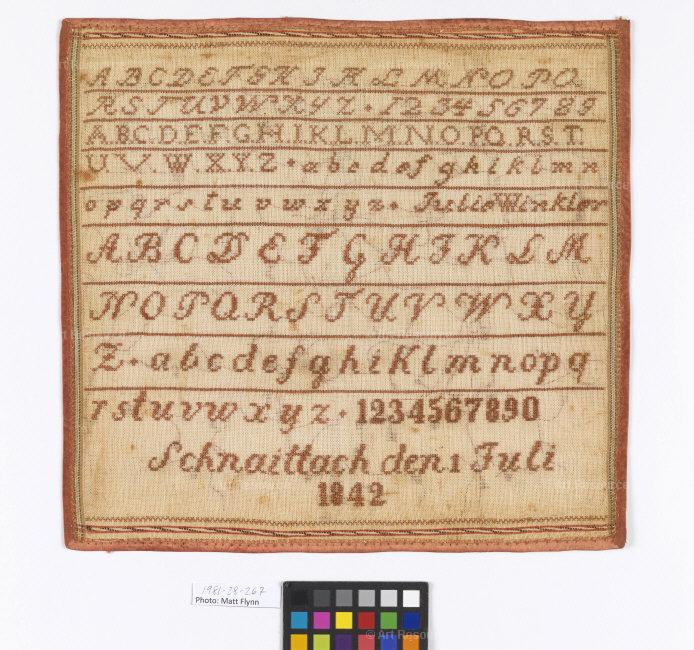 A B C D E F G H I K L M N O P Q
R S T U V W X Y Z • 1 2 3 4 5 6 7 8 9
A.B.C.D.E.F.G.H.I.K.L.M.N.O.P.Q.R.S.T.
U.V.W.X.Y.Z • a b c d e f g h i k l m n
o p q r s t u v w x y z • Julie Winkler
A B C D E F G H I K L M
N O P Q R S T U V W X Y
Z • a b c d e f g h i K l m n o p q
r s t u v w x y z • 1234567890
Schnaittach den 1 Juli
1842
1981-28-267
Photo: Matt Flynn
© Art Resou